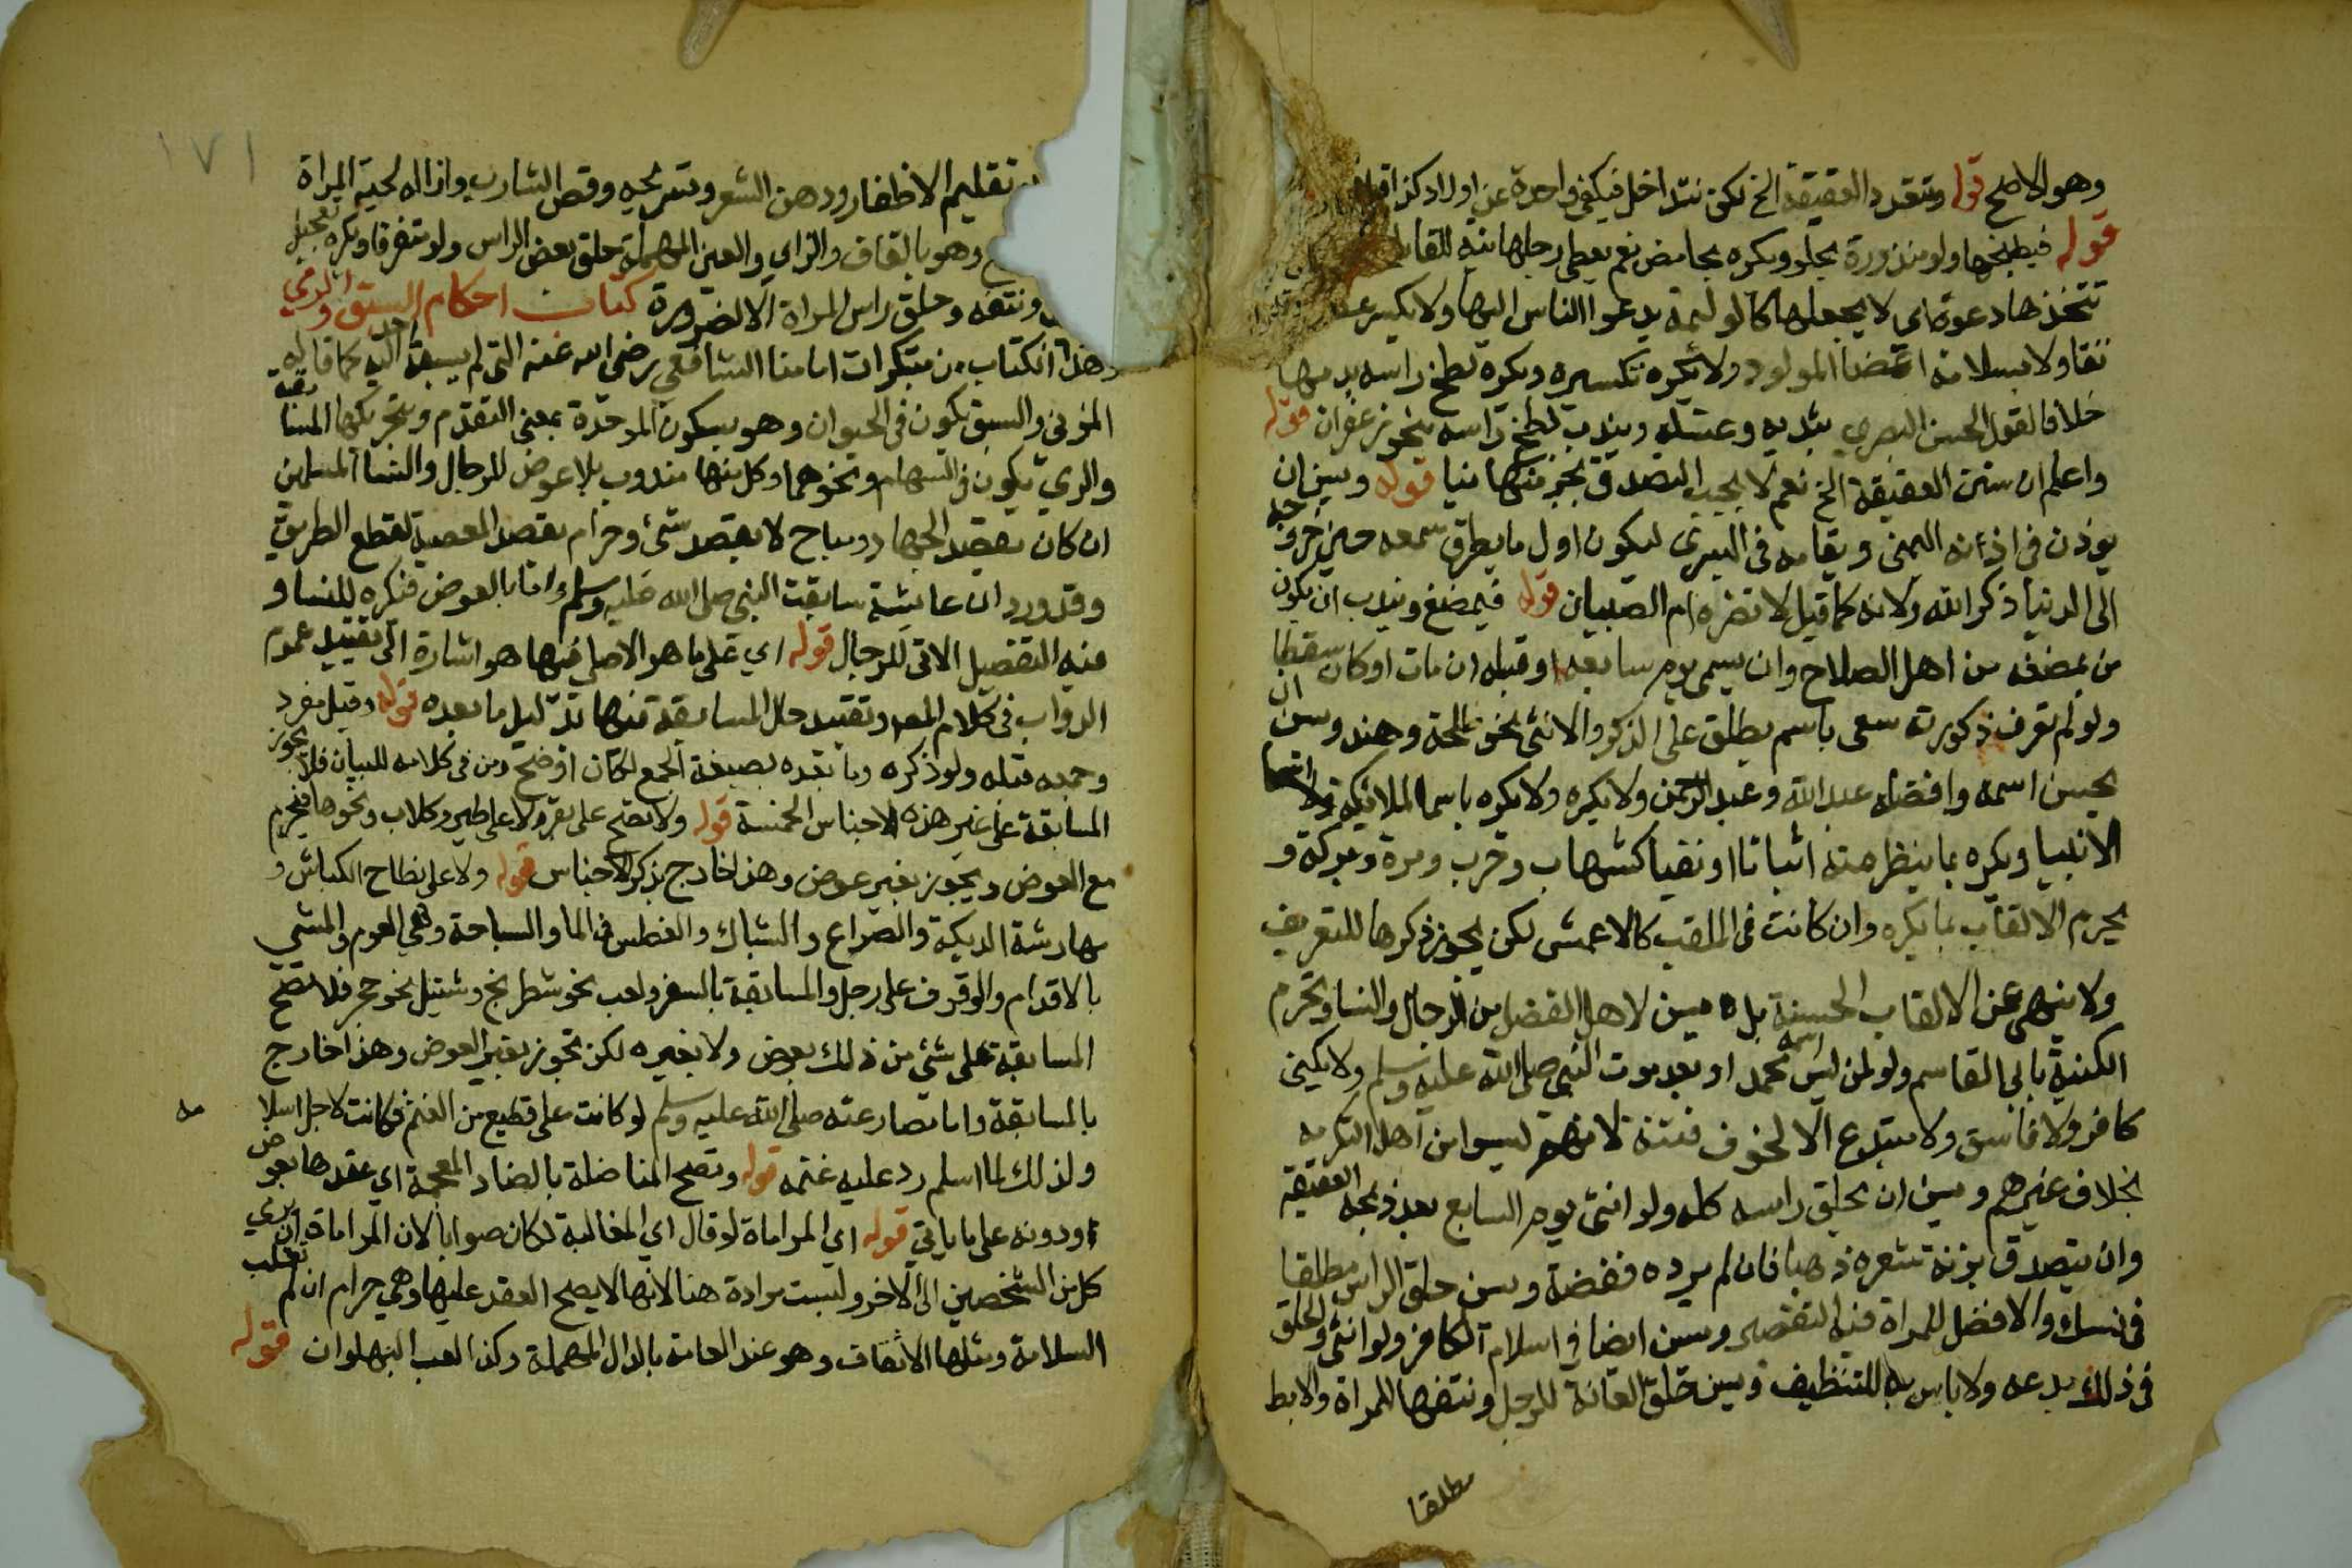 وهو الاصح قوله وتتعدد العقيقة الخ لكن تتداخل فيكفي واحدة عن اولاد كذا
قوله فيطبخها ولو منذورة بحلو ويكره بحامض نعم يعطى رجلها نية للقابلة
تتخذها دعوة اي لا يجعلها كالوليمة يدعوا الناس اليها ولا يكسر
تفاولا بسلامة اعضا المولود ولا يكره تكسيره ويكره لطخ راسه بدمها
خلافا لقول الحسن البصري بندبه وغسله ويندب لطخ راسه بنحو زعفران قوله
واعلم ان سنن العقيقة الخ نعم لا يجب التصدق بجزء منها نيا قوله ويسن ان
يوذن في اذنه اليمنى ويقام في اليسرى ليكون اول ما يطرق سمعه حين خروجه
الى الدنيا ذكر الله ولانه كما قيل لا تضره ام الصبيان قوله فيمضغ ويندب ان يكون
من يمضغه من اهل الصلاح وان يسمى يوم سابعه او قبله ان مات او كان سقطا
ولو لم تعرف ذكورته سمى باسم يطلق على الذكر والانثى نحو طلحة وهند وسن ان
يحسن اسمه وافضله عبد الله وعبد الرحمن ولا يكره ولا يكره باسما الملائكة ولا اسما
الانبيا ويكره بما ينظر منه اثباتا او نفيا كشهاب وحرب ومرة وبركة و
يحرم الالقاب بما يكره وان كانت في الملقب كالاعمش لكن يجوز ذكرها للتعريف
ولا ينهى عن الالقاب الحسنة بل يسن لاهل الفضل من الرجال والنسا وتحرم
الكنية بابي القاسم ولو لمن ليس اسمه محمد او بعد موت النبي صلى الله عليه وسلم ولا يكنى
كافر ولا فاسق ولا مبتدع الا لخوف فتنة لانهم ليسوا من اهل التكرمة
بخلاف غيرهم ويسن ان يحلق راسه كله ولو انثى يوم السابع بعد ذبح العقيقة
وان يتصدق بزنة شعره ذهبا فان لم يرده ففضة ويسن حلق الراس مطلقا
في نسك والافضل للمراة فيه التقصير ويسن ايضا في اسلام الكافر ولو انثى والحلق
في ذلك بدعه ولا باس به للتنظيف ويسن حلق العانة للرجل ونتفها للمراة والابط
مطلقا
١٧١
تقليم الاظفار ودهن الشعر وتسريحه وقص الشارب وازالة لحية المراة
وهو بالقاف والزاي والعين المهملة حلق بعض الراس ولو متفرقا ويكره تعجيل
ونتفه وحلق راس المراة الا لضرورة كتاب احكام السبق والرمي
وهذا الكتاب من مبتكرات امامنا الشافعي رضي الله عنه التي لم يسبقه احد اليه كما قاله
المزني والسبق يكون في الحيوان وهو بسكون الموحدة بمعنى التقدم وبتحريكها المسابقة
والرمي يكون في السهام ونحوهما وكل منها مندوب بلا عوض للرجال والنسا المسلمين
ان كان بقصد الجهاد ومباح لا بقصد شئ وحرام بقصد المعصية لقطع الطريق
وقد ورد ان عايشة سابقت النبي صلى الله عليه وسلم واما بالعوض فيكره للنسا و
فيه التفصيل الاتي للرجال قوله اي على ما هو الاصل فيها هو اشارة الى تقييد عموم
الدواب في كلام المص وتقييد حل المسابقة منها بدليل ما بعده قوله وقيل مفرد
وجمعه قبله ولو ذكره وما بعده بصيغة الجمع لكان اوضح ومن في كلامه للبيان فلا تجوز
المسابقة على غير هذه الاجناس الخمسة قوله ولا تصح على بقر ولا على طير وكلاب ونحوها فيحرم
مع العوض ويجوز بغير عوض وهذا خارج بذكر الاجناس قوله ولا على نطاح الكباش و
مهارشة الديكة والصراع والشباك والغطس في الما والسباحة وهي العوم والمشي
بالاقدام والوقوف على رجل والمسابقة بالسفر ولعب نحو شطرنج وشيل نحو حجر فلا تصح
المسابقة على شئ من ذلك بعوض ولا بغيره لكن تجوز بغير العوض وهذا خارج
بالمسابقة واما مصارعته صلى الله عليه وسلم لو كانت على قطيع من الغنم فكانت لاجل اسلا مه
ولذلك لما اسلم رد عليه غنمه قوله وتصح المناضلة بالضاد المعجمة اي عقدها بعوض
ودونه على ما ياتي قوله اي المراماة لو قال اي المغالبة لكان صوابا لان المراماة ان يرمي
كل من الشخصين الى الاخر وليست مرادة هنا لانها لا يصح العقد عليها وهي حرام ان لم تغلب
السلامة ومثلها الاثقاف وهو عند العامة بالدال المهملة وكذا لعب البهلوان قوله